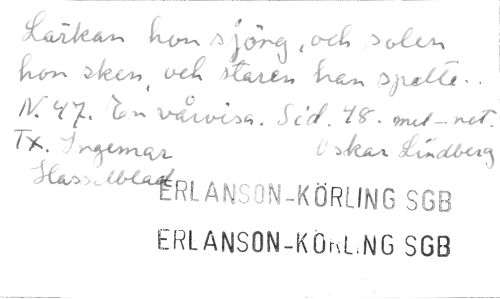 Lärkan hon sjöng, och solen
hon sken, och staren han spelte..
N. 47. En vårvisa. Sid. 48. mel-net.
Tx. Ingemar Oskar Lindberg
Hasselblad
ERLANSON-KÖRLING SGB
ERLANSON-KÖRLING SGB